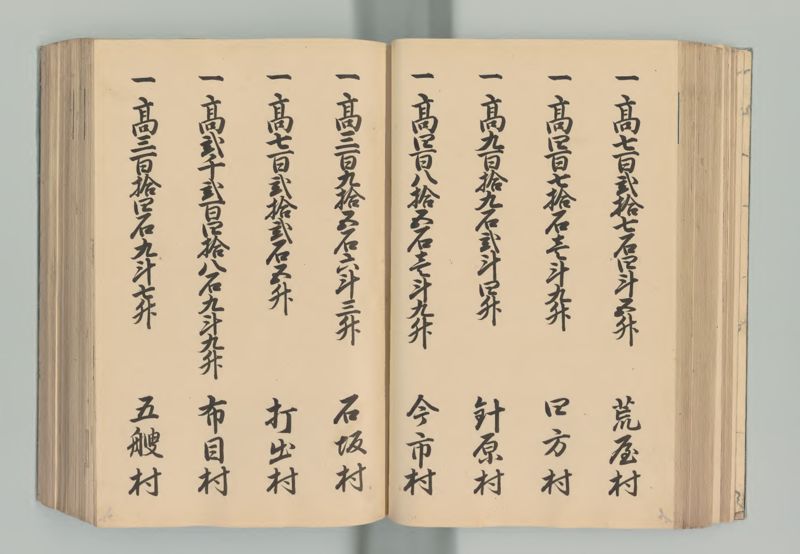 一 高七百弐拾七石四斗五升 荒屋村
一 高四百七拾石壱斗九升 四方村
一 高九百拾九石弐斗四升 針原村
一 高四百八拾五石壱斗九升 今市村
一 高三百九拾五石六斗三升 石坂村
一 高七百弐拾弐石五升 打出村
一 高弐千弐百四拾八石九斗九升 布目村
一 高三百拾四石九斗七升 五艘村